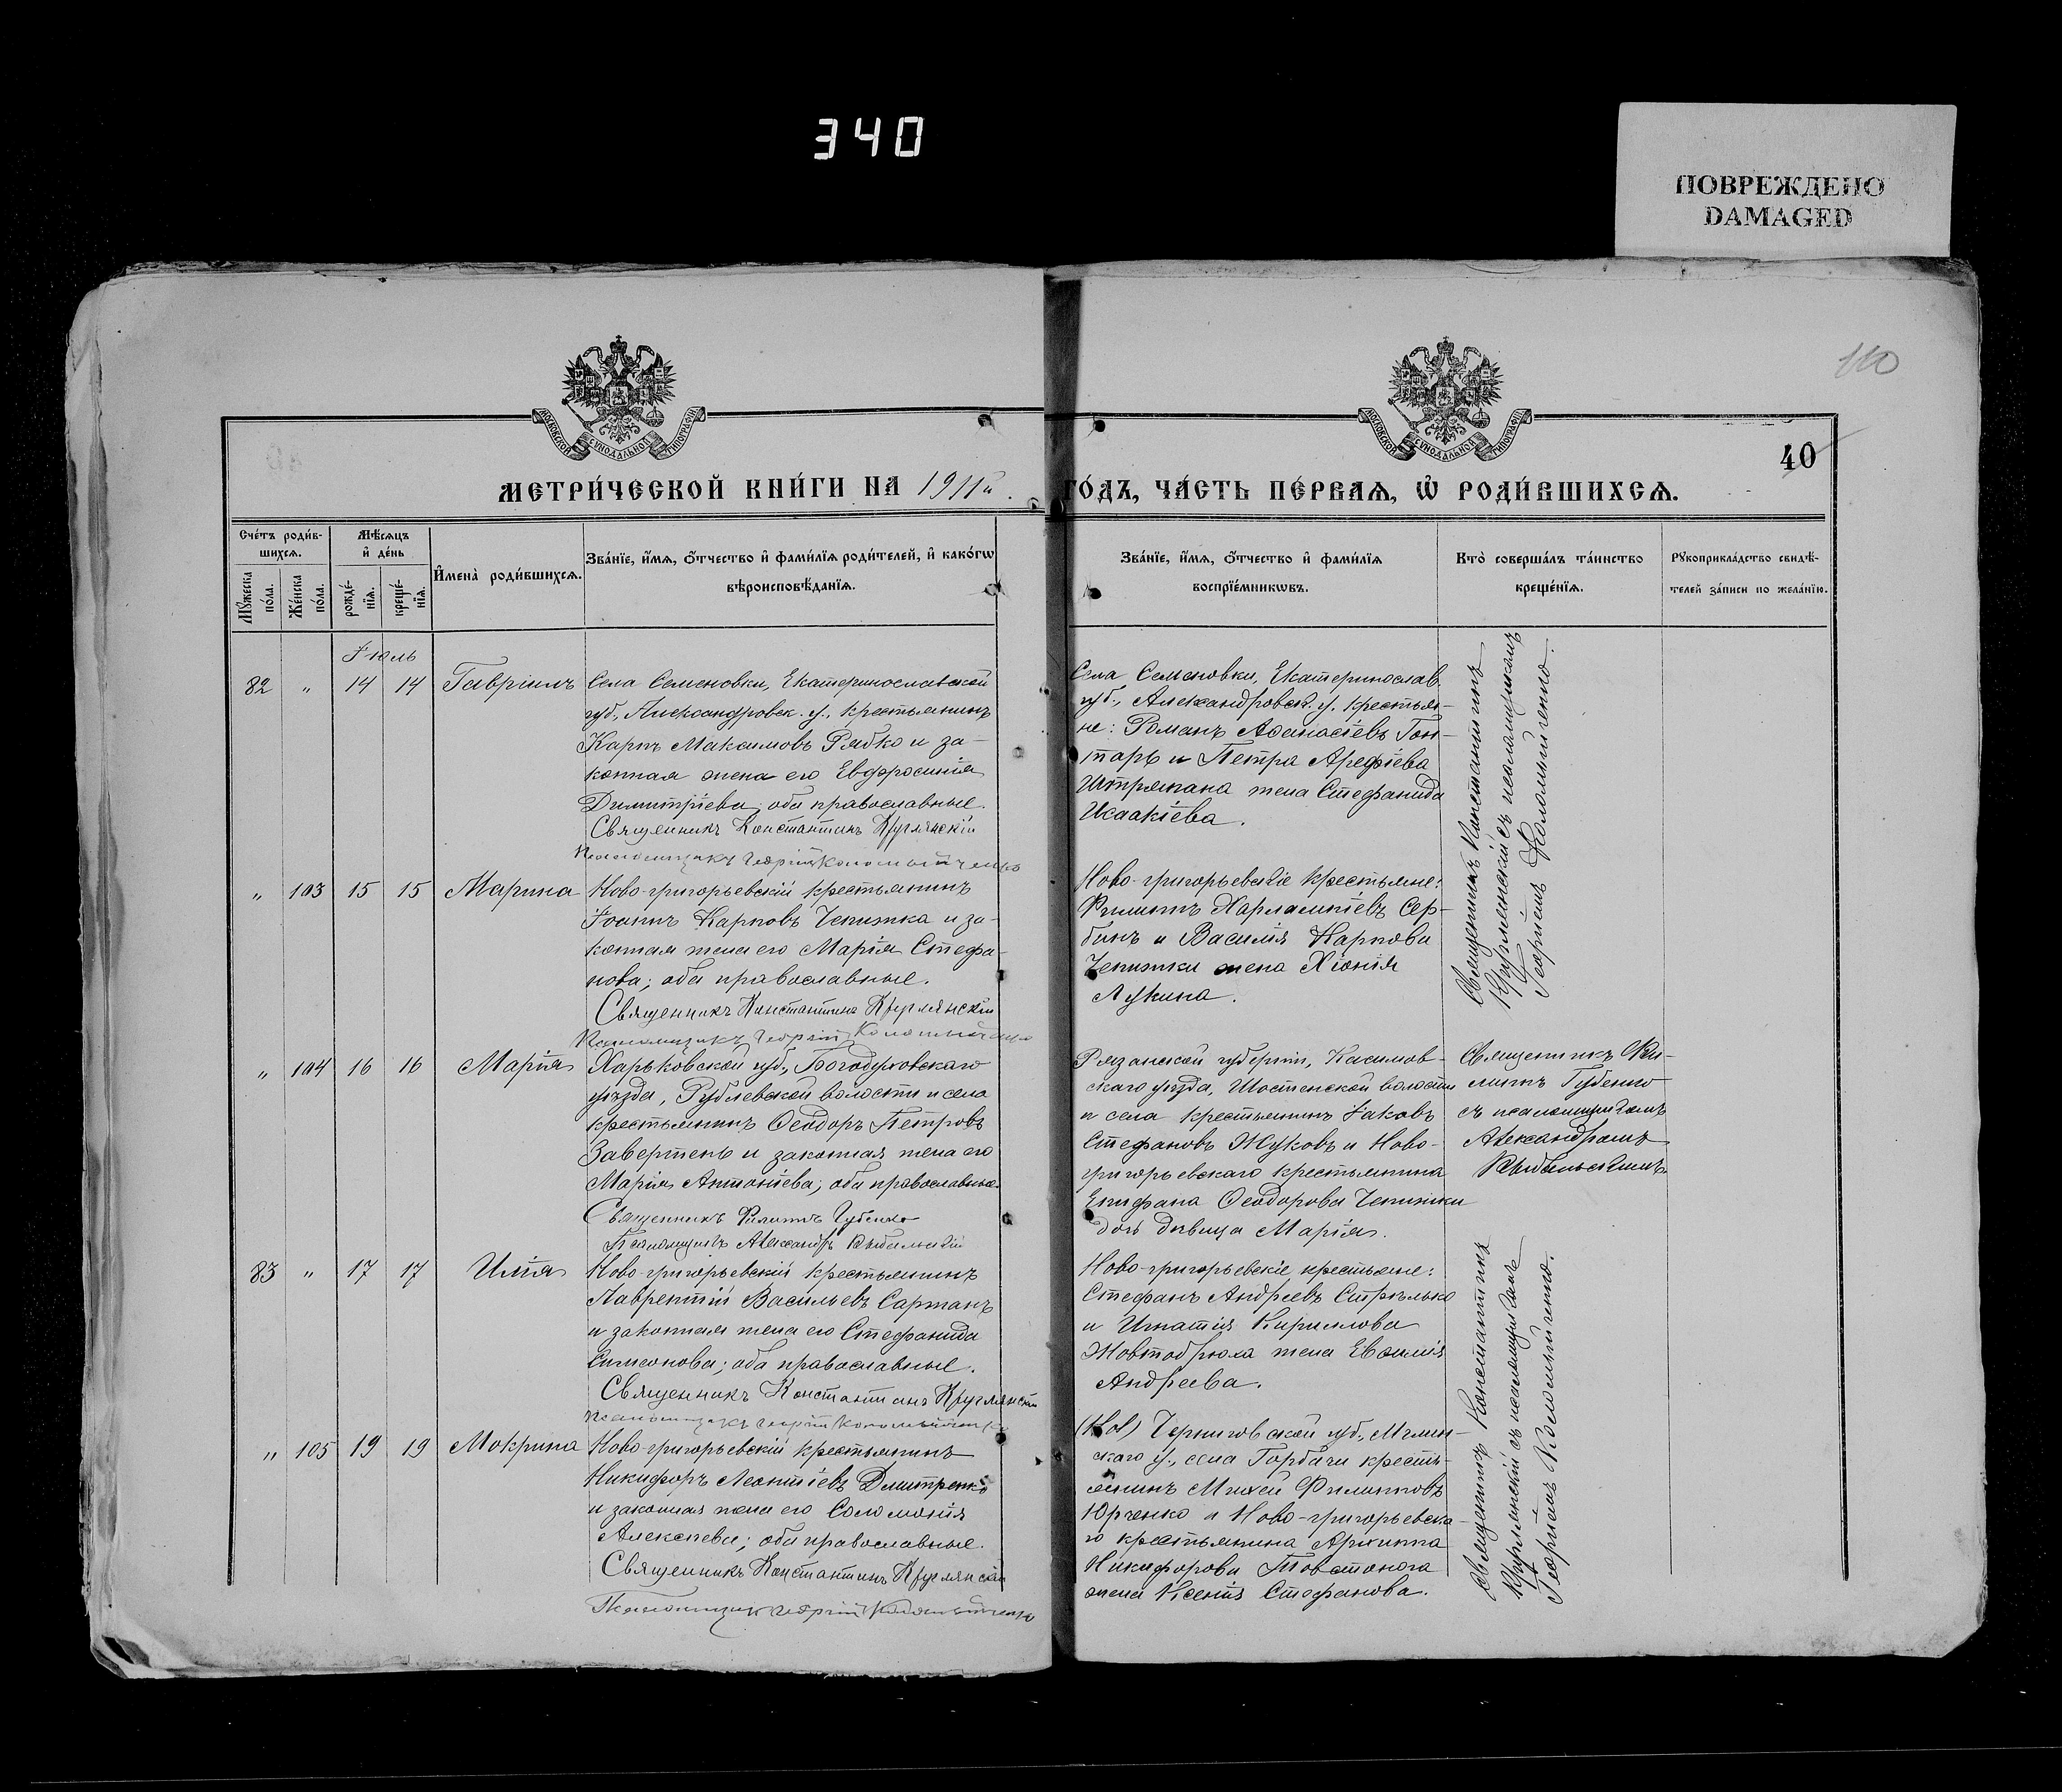 340
ПОВРЕЖДЕНО
DAMAGED
110
40
МОСКОВСКОЙ СѴНОДАЛЬНОЙ ТИПОГРАФІИ
МОСКОВСКОЙ СѴНОДАЛЬНОЙ ТИПОГРАФІИ
МЕТРИ́ЧЕСКОЙ КНИ́ГИ НА 1911й. ГО́ДЪ, ЧА́СТЬ ПЕ́РВАѦ, Ѡ҆ РОДИ́ВШИХСѦ.
Сче́тъ роди́в-
шихсѧ.
Мꙋ́жеска по́ла.
Же́нска по́ла.
Мѣ́сѧцъ
и҆ де́нь
рожде́-
нїѧ.
креще́-
нїѧ.
И҆мена̀ роди́вшихсѧ.
Зва́нїе, и҆́мѧ, ѻ҆́тчество и҆ фами́лїѧ роди́телей, и҆ како́гѡ
вѣроисповѣ́данїѧ.
Зва́нїе, и҆́мѧ, ѻ҆́тчество и҆ фами́лїѧ
воспрїе́мникѡвъ.
Кто̀ соверша́лъ та́инство
креще́нїѧ.
Рꙋкоприкла́дство свидѣ́-
телей за́писи по жела́нїю.
Іюль
82 " 14 14 Гавріилъ
Села Семеновки, Екатеринославской
губ., Александровск. у., крестьянинъ
Карпъ Максимовъ Рябко и за-
конная жена его Евфросинія
Димитріева; оба православные.
Священникъ Константинъ Круглянскій
Псаломщикъ Георгій Коломыйченко
Села Семеновки, Екатеринослав.
губ., Александровск. у. крестья-
не: Романъ Аѳанасіевъ Гон-
тарь и Петра Арефіева
Штрякана жена Стефанида
Исаакіева.
Священникъ Константинъ
Круглянскій съ псаломщикомъ
Георгіемъ Коломыйченко.
" 103 15 15 Марина
Ново-григорьевскій крестьянинъ
Іоаннъ Карповъ Чепижка и за-
конная жена его Марія Стефа-
нова; оба православные.
Священникъ Константинъ Круглянскій
Псаломщикъ Георгій Коломыйченко
Ново-григорьевскіе крестьяне:
Филиппъ Харлампіевъ Сер-
бинъ и Василія Карпова
Чепижки жена Хіонія
Лукина.
" 104 16 16 Марія
Харьковской губ., Богодуховскаго
уѣзда, Рублевской волости и села
крестьянинъ Ѳеодоръ Петровъ
Завертень и законная жена его
Марія Антоніева; оба православные.
Священникъ Филиппъ Губенко
Псаломщикъ Александръ
Рязанской губерніи, Касимов-
скаго уѣзда, Шостенской волости
и села крестьянинъ Іаковъ
Стефановъ Жуковъ и Ново-
григорьевскаго крестьянина
Епифана Ѳеодорова Чепижки
дочь дѣвица Марія.
Священникъ Фи-
липпъ Губенко
съ псаломщикомъ
Александромъ
83 " 17 17 Илія
Ново-григорьевскій крестьянинъ
Лаврентій Васильевъ Сартанъ
и законная жена его Стефанида
Симеонова; оба православные.
Священникъ Константинъ Круглянскій
Псаломщикъ Георгій Коломыйченко
Ново-григорьевскіе крестьяне:
Стефанъ Андреевъ Стрѣлько
и Игнатія Кириллова
Жовтобрюха жена Евѳимія
Андреева.
Священникъ Константинъ
Круглянскій съ псаломщикомъ
Георгіемъ Коломыйченко.
" 105 19 19 Мокрина
Ново-григорьевскій крестьянинъ
Никифоръ Леонтіевъ Дмитренко
и законная жена его Соломонія
Алексѣева; оба православные.
Священникъ Константинъ Круглянскій
Псаломщикъ Георгій Коломыйченко
(Нов) Черниговской губ., Мглин-
скаго у., села Горбачи кресть-
янинъ Михей Филипповъ
Юрченко и Ново-григорьевска-
го крестьянина Архиппа
Никифорова Товстонога
жена Ксенія Стефанова.